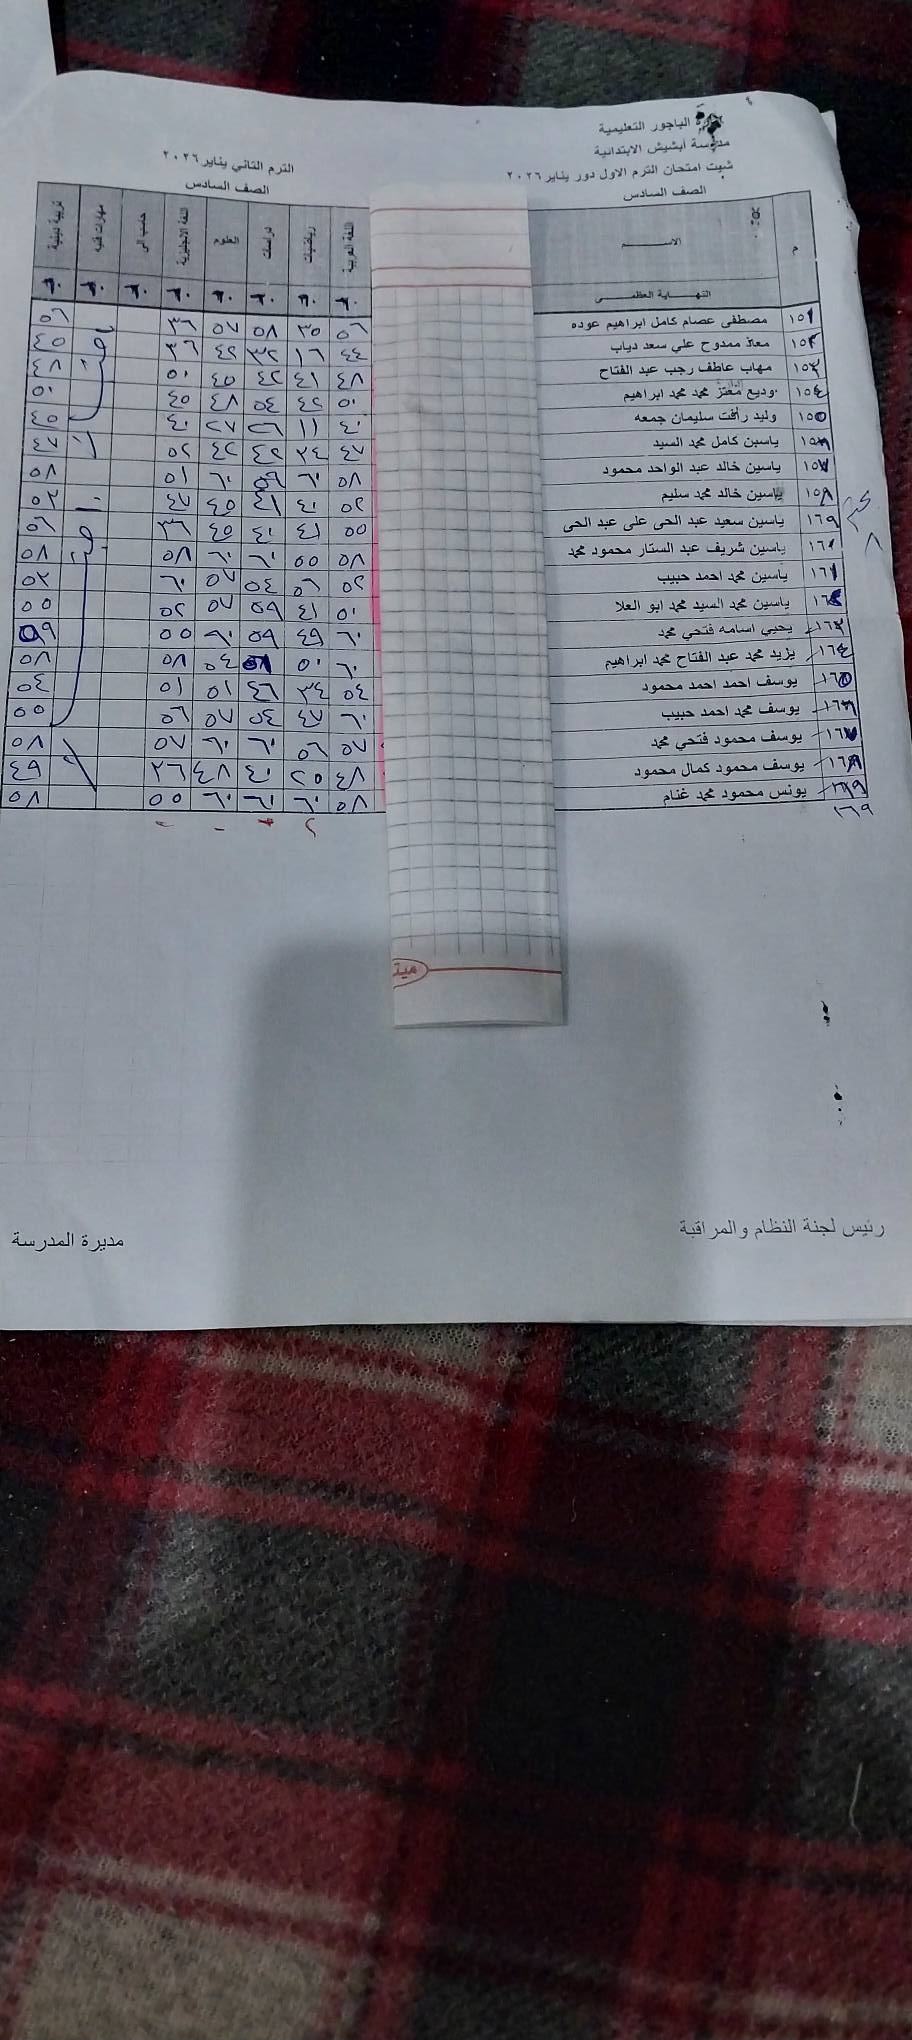 الباجور التعليمية
مدرسة أبشيش الابتدائية
شيت امتحان الترم الاول دور يناير ٢٠٢٦
الترم الثاني يناير ٢٠٢٦
الصف السادس
الصف السادس
م الاســـم اللغة العربية رياضيات دراسات العلوم اللغة الانجليزية حاسب الى مهارات فنيه تربية دينية
النهـــاية العظمـــى ٦٠ ٦٠ ٦٠ ٦٠ ٦٠ ٦٠ ٦٠ ٦٠
١٥١ مصطفى عصام كامل ابراهيم عوده ٥٦ ٣٥ ٥٨ ٥٧ ٣٦ ٥٦
١٥٢ معاذ ممدوح علي سعد دياب ٤٤ ١٦ ٣٢ ٤٢ ٣٦ ٤٥
١٥٣ مهاب عاطف رجب عبد الفتاح ٤٨ ٤١ ٤٢ ٤٥ ٥٠ ٤٨
١٥٤ وديع معتز محمد محمد ابراهيم ٥٠ ٤٢ ٥٤ ٤٨ ٤٥ ٥٠
١٥٥ وليد رأفت سليمان جمعه ٤٠ ١١ ٢٧ ٤٠ ٤٥
١٥٦ ياسين كامل محمد السيد ٤٧ ٢٤ ٤٢ ٤٢ ٥٢ ٤٧
١٥٧ ياسين خالد عبد الواحد محمود ٥٨ ٦٠ ٥٩ ٦٠ ٥١ ٥٨
١٥٨ ياسين خالد محمد سليم ٥٢ ٤٠ ٤١ ٤٥ ٤٧ ٥٢
١٦٩ ياسين سعيد عبد الحى على عبد الحى ٥٥ ٤١ ٤٠ ٤٥ ٣٦ ٥٦
١٦٠ ياسين شريف عبد الستار محمود محمد ٥٨ ٥٥ ٦٠ ٦٠ ٥٨ ٥٨
١٦١ ياسين محمد احمد حبيب ٥٢ ٥٦ ٥٤ ٥٧ ٦٠ ٥٢
١٦٢ ياسين محمد السيد محمد ابو العلا ٥٠ ٤١ ٥٩ ٥٧ ٥٢ ٥٥
١٦٣ يحيي اسامه فتحي محمد ٦٠ ٤٩ ٥٩ ٦٠ ٥٥ ٥٩
١٦٤ يزيد محمد عبد الفتاح محمد ابراهيم ٦٠ ٥٠ ٥٤ ٥٨ ٥٨
١٦٥ يوسف احمد احمد محمود ٥٤ ٣٤ ٤٦ ٥١ ٥١ ٥٤
١٦٦ يوسف محمد احمد حبيب ٦٠ ٤٧ ٥٤ ٥٧ ٥٦ ٥٥
١٦٧ يوسف محمود فتحي محمد ٥٧ ٥٦ ٦٠ ٦٠ ٥٧ ٥٨
١٦٨ يوسف محمود كمال محمود ٤٨ ٢٥ ٤٠ ٤٨ ٢٦ ٤٩
١٦٩ يونس محمود محمد غنام ٥٨ ٦٠ ٦٠ ٦٠ ٥٥ ٥٨
١٦٩
رئيس لجنة النظام والمراقبة
مديرة المدرسة